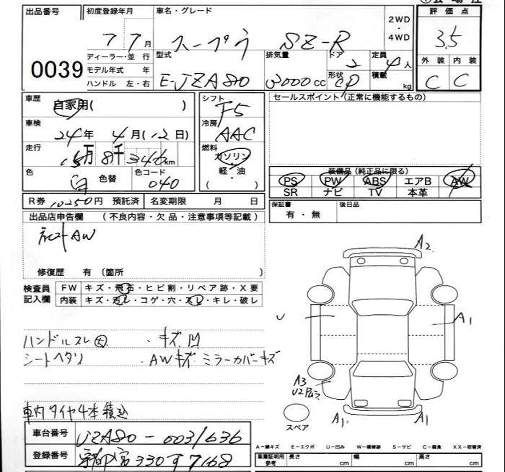 出品番号
0039
初度登録年月
7年7月
ディーラー・並行
モデル年式 年
ハンドル 左・右
車名・グレード
スープラ SZ-R
2WD
4WD
型式 E-JZA80
排気量 3000cc
ドア 2
形状 CP
定員 4人
積載 kg
評価点
3.5
外装 内装
C C
車歴 自家用( )
車検 24年4月(12日)
走行 15万8千346km
色 白 色替 色コード 040
シフト F5
冷房 AAC
燃料 ガソリン
軽・油
セールスポイント(正常に機能するもの)
装備品(純正品に限る)
PS PW ABS エアB AW
SR ナビ TV 本革
R券 10250円 預託済 名変期限 月 日
保証書 有・無
後日品
出品店申告欄 (不良内容・欠品・注意事項等記載)
AW
修復歴 有(箇所 )
検査員記入欄
FW キズ・飛石・ヒビ割・リペア跡・X要
内装 キズ・汚レ・コゲ・穴・スレ・キレ・破レ
ハンドルスレ大 ・キズ凹
シートヘタリ ・AWキズ ミラーカバーキズ
車内タイヤ4本積込
A2
U
A1
A3
U2
A1
A1
スペア
車台番号 JZA80-0031636
登録番号 宇都宮330す7168
A-線キズ E-エクボ U-凹ミ W-補修跡 S-サビ C-腐食 XX-交換済
車検証 長さ cm 幅 cm 高さ cm